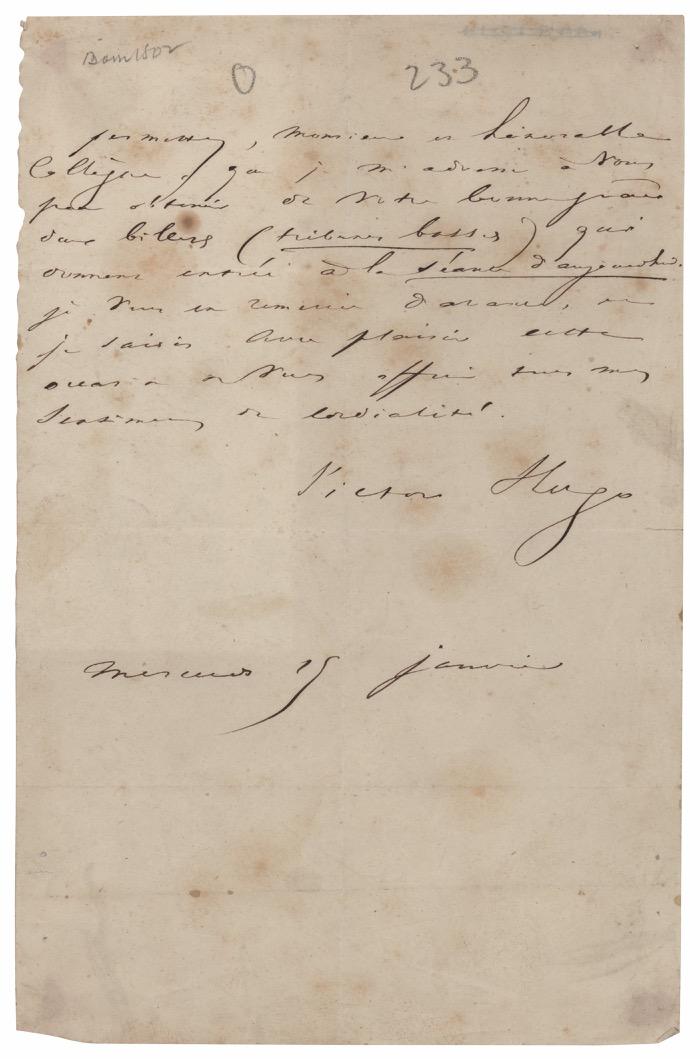 O 233
permettez, Monsieur et honorable
Collègue, que je m'adresse à vous
pour obtenir de votre bonne grâce
deux billets (tribunes basses) qui
donnent entrée à la séance d'aujourd'hui.
je vous en remercie d'avance, et
je saisis avec plaisir cette
occasion de vous offrir tous mes
sentiments de cordialité.
Victor Hugo
mercredi 15 janvier